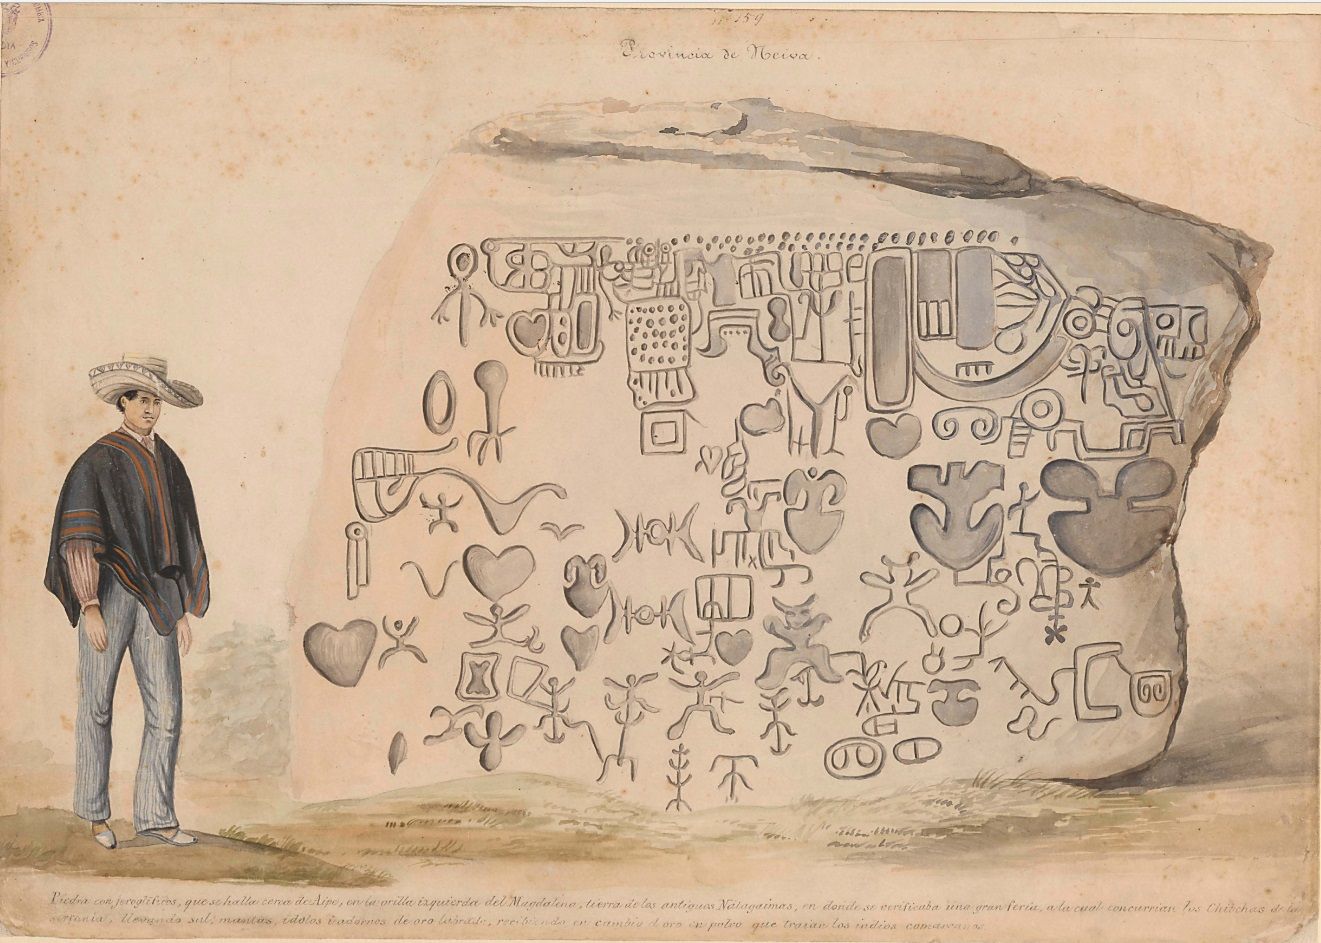 159
Provincia de Neiva.
Piedra con jeroglificos, que se halla cerca de Aipe, en la orilla izquierda del Magdalena, tierra de los antiguos Natagaimas, en donde se verificaba una gran feria, a la cual concurrian los Chibchas de la
serrania, llevando sal, mantas, idolos i adornos de oro labrado, recibiendo en cambio el oro en polvo que traian los indios comarcanos.